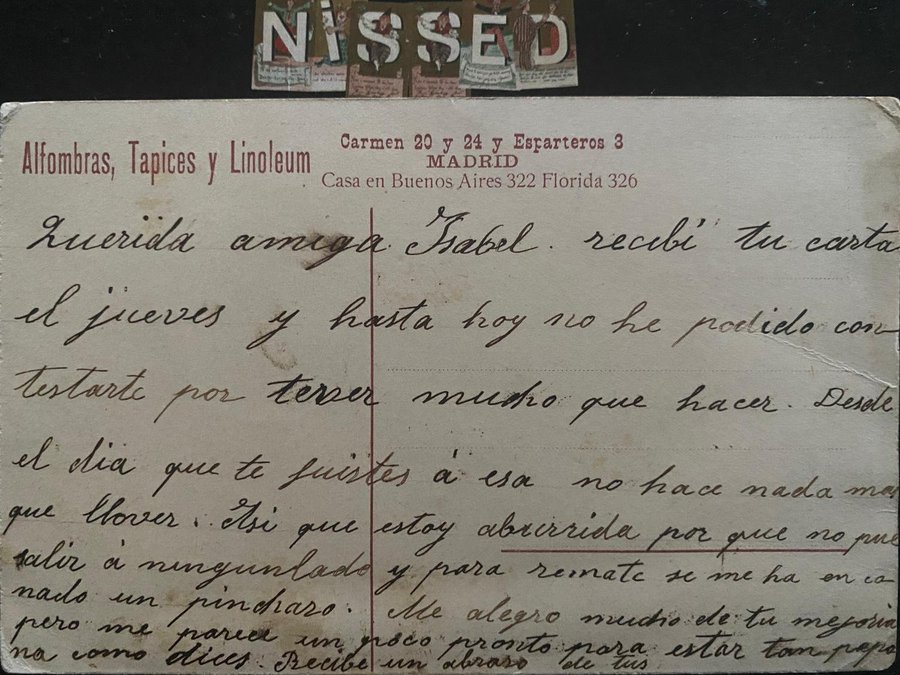 NiSSED
Alfombras, Tapices y Linoleum
Carmen 20 y 24 y Esparteros 3
MADRID
Casa en Buenos Aires 322 Florida 326
Querida amiga Isabel. recibí tu carta
el jueves y hasta hoy no he podido con
testarte por tener mucho que hacer. Desde
el dia que te fuistes á esa no hace nada mas
que llover. Asi que estoy aburrida por que no pue
salir á ningunlado y para remate se me ha en co
nado un pincharo. Me alegro mucho de tu mejoria
pero me parece un poco pronto para estar tan pepo
na como dices. Recibe un abrazo de tus